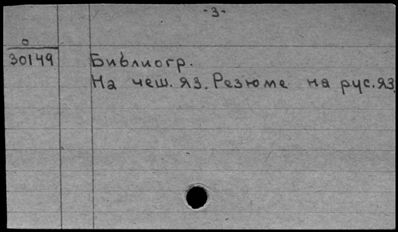 -3-
0
30149
Библиогр.
На чеш. яз. Резюме на рус. яз.